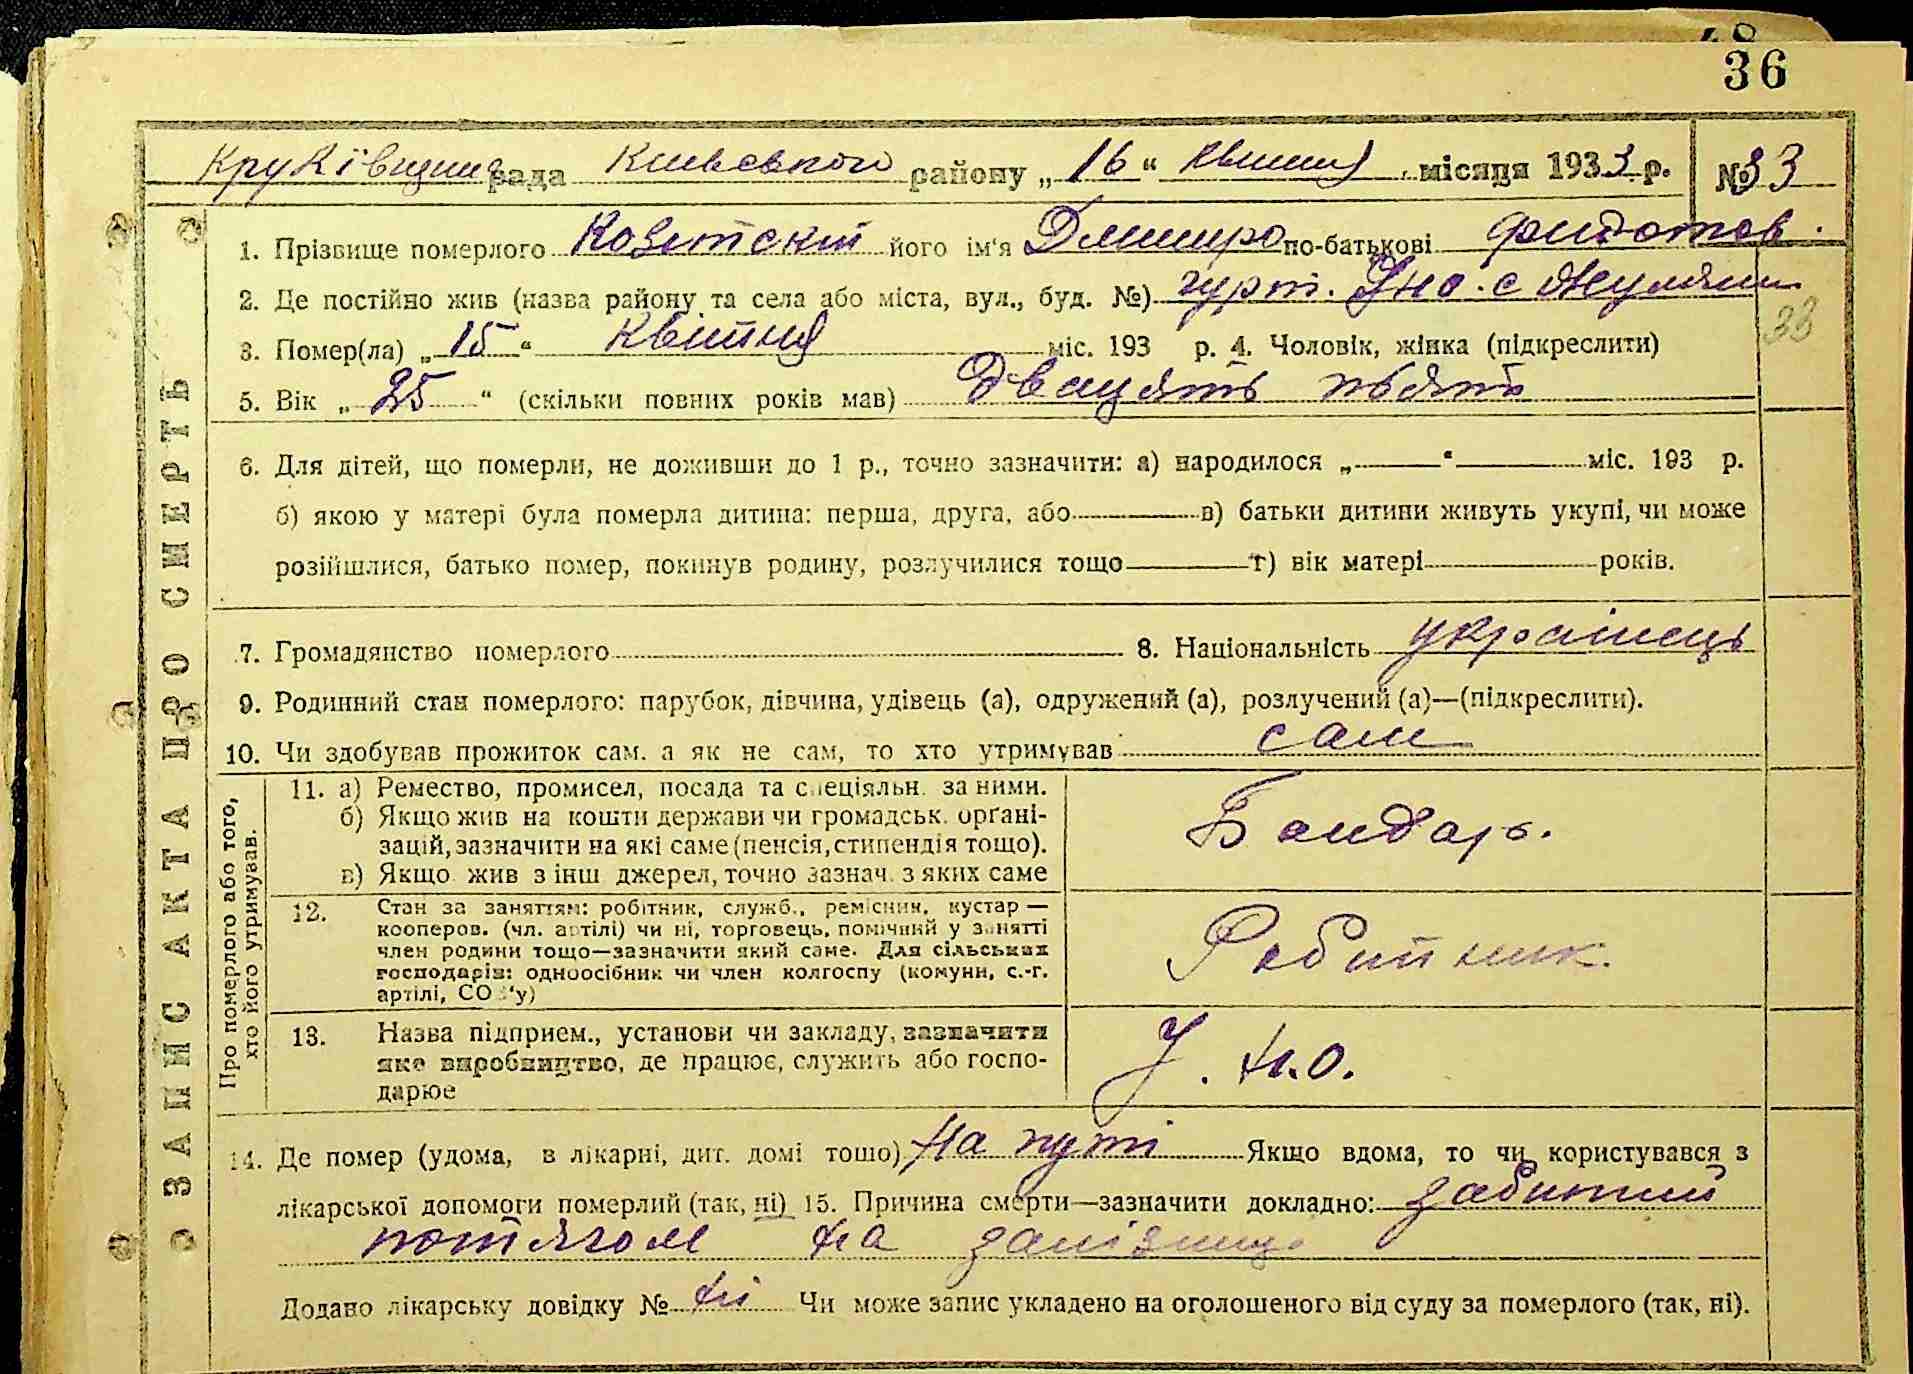 36
Круківщинс рада Київського району „16“ квітня місяця 1933 р. № 33
1. Прізвище померлого його ім'я Дмитро по-батькові Фидотов.
2. Де постійно жив (назва району та села або міста, вул., буд. №) гурт. Уно. с Жуляни
33
3. Помер(ла) „15“ Квітня міс. 193 р. 4. Чоловік, жінка (підкреслити)
5. Вік „25“ (скільки повних років мав) Двацять пьять
6. Для дітей, що померли, не доживши до 1 р., точно зазначити: а) народилося „—“ — міс. 193 р.
б) якою у матері була померла дитина: перша, друга, або — в) батьки дитини живуть укупі, чи може
розійшлися, батько помер, покинув родину, розлучилися тощо — г) вік матері — років.
7. Громадянство померлого 8. Національність українець
9. Родинний стан померлого: парубок, дівчина, удівець (а), одружений (а), розлучений (а)—(підкреслити).
10. Чи здобував прожиток сам. а як не сам, то хто утримував сам
ЗАПИС АКТА ПРО СМЕРТЬ
Про померлого або того, хто його утримував.
11. а) Ремество, промисел, посада та спеціяльн. за ними.
б) Якщо жив на кошти держави чи громадськ. орґані-
зацій, зазначити на які саме (пенсія, стипендія тощо).
в) Якщо жив з інш. джерел, точно зазнач. з яких саме
Бондарь.
12. Стан за заняттям: робітник, служб., ремісник, кустар—
кооперов. (чл. артілі) чи ні, торговець, помічний у занятті
член родини тощо—зазначити який саме. Для сільських
господарів: одноосібник чи член колгоспу (комуни, с.-г.
артілі, СОЗ'у)
Робитник.
13. Назва підприєм., установи чи закладу, зазначити
яке виробництво, де працює, служить або госпо-
дарює
У. Н.О.
14. Де помер (удома, в лікарні, дит. домі тошо) На путі Якщо вдома, то чи користувався з
лікарської допомоги померлий (так, ні) 15. Причина смерти—зазначити докладно: забитий
потягом на залізниці
Додано лікарську довідку № ні Чи може запис укладено на оголошеного від суду за померлого (так, ні).